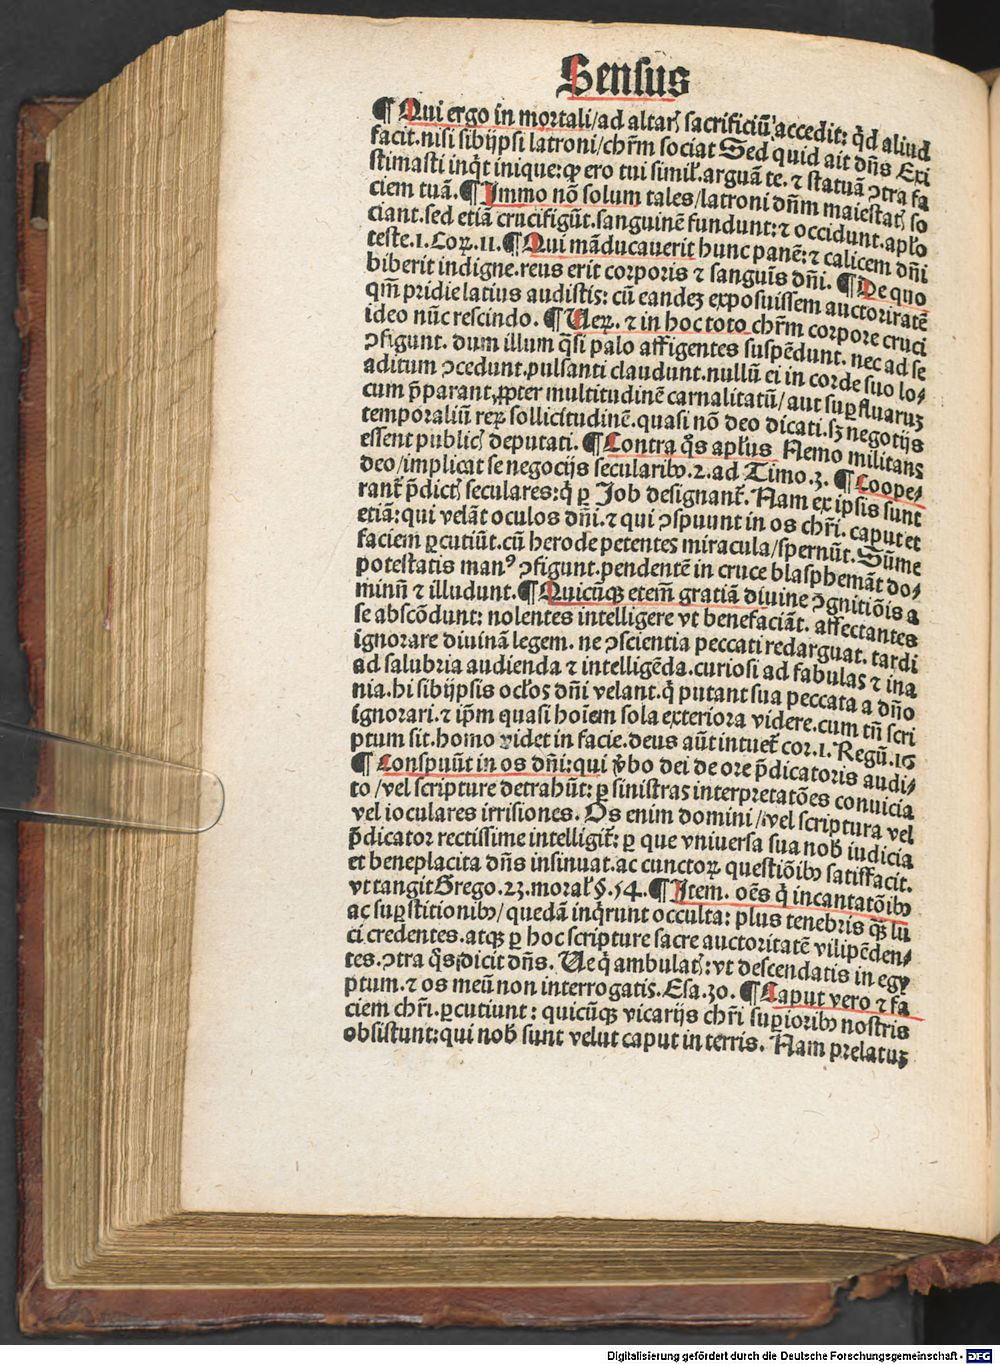 Sensus
¶ Qui ergo in mortali/ad altarꝭ sacrificiū accedit: qͥd aliud
facit.nisi sibijpsi latroni/chr̄m sociat Sed quid ait dn̄s Exi
stimasti inqͥt inique:ꝙ ero tui simil̕.arguā te.⁊ statuā ꝯtra fa
ciem tuā.¶ Immo nō solum tales/latroni dn̄m maiestatꝭ so
ciant.sed etiā crucifigūt.sanguinē fundunt:⁊ occidunt.apl̕o
teste.1.Coꝝ.11.¶ Qui māducauerit hunc panē:⁊ calicem dn̄i
biberit indigne.reus erit corporis ⁊ sanguīs dn̄i. ¶ De quo
qm̄ pridie latius audistis: cū eandeꝫ exposuissem auctoriratē
ideo nūc rescindo. ¶ Ueꝝ. ⁊ in hoc toto chr̄m corpore cruci
ꝯfigunt. dum illum qͣsi palo affigentes suspēdunt. nec ad se
aditum ꝯcedunt.pulsanti claudunt.nullū ei in corde suo lo⸗
cum p̄parant,ꝓpter multitudinē carnalitatū/aut suꝑfluaruꝫ
temporaliū reꝝ sollicitudinē.quasi nō deo dicati.sꝫ negotijs
essent publicꝭ deputati. ¶ Contra qͦs apl̕us Nemo militans
deo/implicat se negocijs secularibꝰ.2.ad Timo.3. ¶ Coope⸗
rant̕ p̄dictꝭ seculares:qͥ ꝑ Job designant̕. Nam ex ipsis sunt
etiā:qui velāt oculos dn̄i.⁊ qui ꝯspuunt in os chr̄i. caput et
faciem ꝑcutiūt.cū herode petentes miracula/spernūt. Sūme
potestatis manꝰ ꝯfigunt.pendentē in cruce blasphemāt do⸗
minū ⁊ illudunt.¶ Quicūqꝫ etem̄ gratiā diuine ꝯgnitiōis a
se abscōdunt: nolentes intelligere vt benefaciāt. affectantes
ignorare diuinā legem. ne ꝯscientia peccati redarguat. tardi
ad salubria audienda ⁊ intelligēda.curiosi ad fabulas ⁊ ina
nia.hi sibijpsis ocl̕os dn̄i velant.qͥ putant sua peccata a dn̄o
ignorari.⁊ ip̄m quasi hoīem sola exteriora videre.cum tn̄ scri
ptum sit.homo videt in facie.deus aūt intuet̕ cor.1.Regū.16
¶ Conspuūt in os dn̄i:qui v̕bo dei de ore p̄dicatoris audi⸗
to/vel scripture detrahūt: ꝑ sinistras interpretatōes conuicia
vel ioculares irrisiones. Os enim domini/vel scriptura vel
p̄dicator rectissime intelligit̕: ꝑ que vniuersa sua nob̕ iudicia
et beneplacita dn̄s insinuat.ac cunctoꝝ questiōibꝰ satisfacit.
vt tangit Grego.23.moral̕ §.54.¶ Item. oēs qͥ incantatōibꝰ
ac suꝑstitionibꝰ/quedā inqͥrunt occulta: plus tenebris qͣꝫ lu
ci credentes.atqꝫ ꝑ hoc scripture sacre auctoritatē vilipēden⸗
tes.ꝯtra qͦs dicit dn̄s. Ue qͥ ambulatꝭ:vt descendatis in egy
ptum.⁊ os meū non interrogatis.Esa.30. ¶ Caput vero ⁊ fa
ciem chr̄i.ꝑcutiunt: quicūqꝫ vicarijs chr̄i suꝑioribꝰ nostris
obsistunt:qui nob̕ sunt velut caput in terris. Nam prelatuꝫ
Digitalisierung gefördert durch die Deutsche Forschungsgemeinschaft - DFG